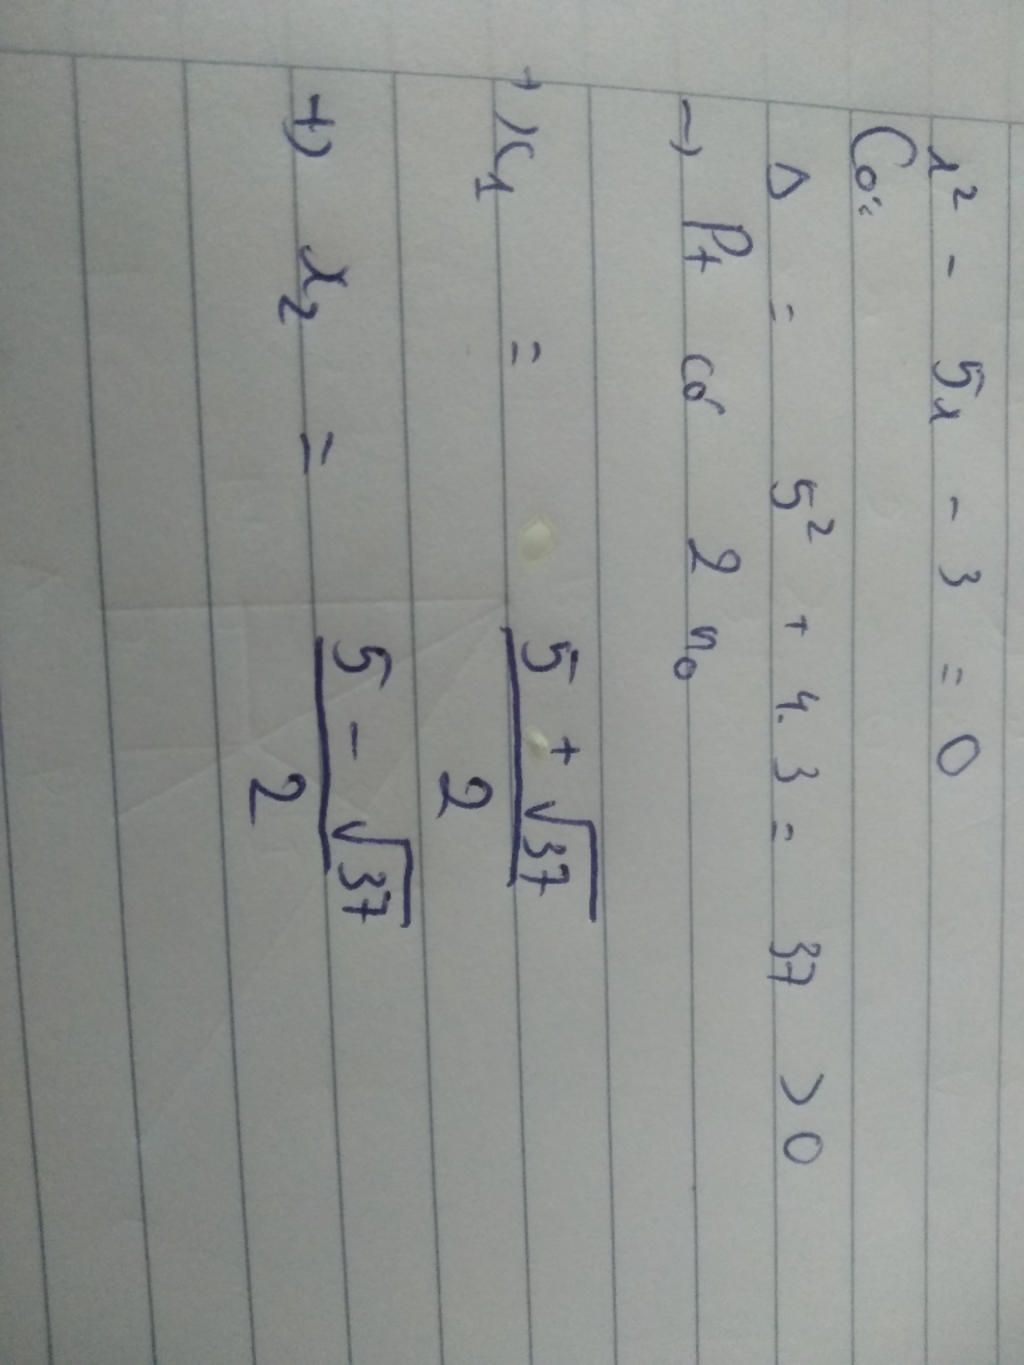 x² - 5x - 3 = 0
Có:
Δ = 5² + 4.3 = 37 > 0
→ Pt có 2 no
+) x₁ = (5 + √37)/2
+) x₂ = (5 - √37)/2